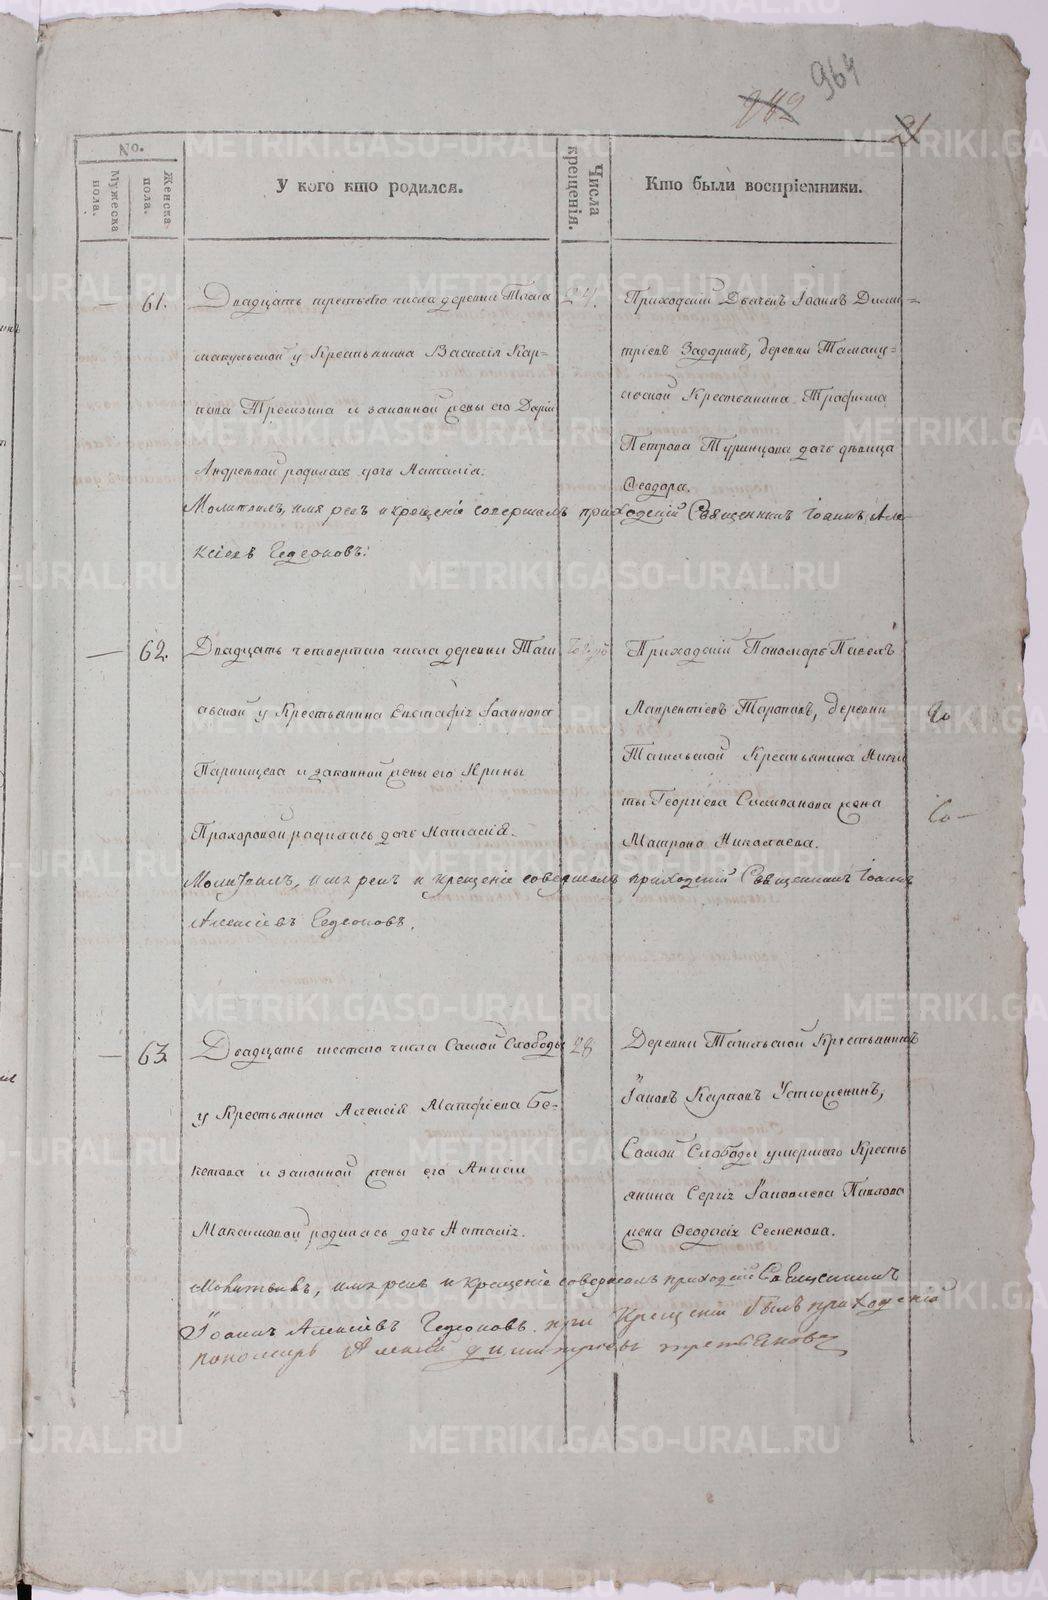 964
242
21
No.
Мужеска пола.
Женска пола.
У кого кто родился.
Числа крещенія.
Кто были воспріемники.
61.
Двадцать третьяго числа деревни
макульской у Крестьянина Василія Кар-
пова и законной жены его Даріи
Андреевой родилась дочь Наталія.
24.
Приходскій Іоаннъ Дими-
тріевъ Задоринъ, деревни
Крестьянина Трофима
Петрова дочь дѣвица
Ѳеодора.
Молитвилъ, имя рекъ и крещеніе совершалъ приходскій Священникъ Іоаннъ Але-
ксіевъ Гедеоновъ.
62.
Двадцать четвертаго числа деревни Таги
льской у Крестьянина Евстафія Іоаннова
и законной жены его Ирины
Прохоровой родилась дочь
Приходскій Пономарь Павелъ
Лаврентіевъ деревни
Тагильской Крестьянина Ники
ты Георгіева жена
Матрона Николаева.
Молитвилъ, имя рекъ и крещеніе совершалъ приходскій Священникъ Іоаннъ
Алексіевъ Гедеоновъ.
63.
Двадцать шестаго числа Самой Слободы
у Крестьянина Алексія Матфіева Бе-
кетова и законной жены его Анисіи
Максимовой родилась дочь Наталія.
28
Деревни Тагильской Крестьянинъ
Іаковъ Карповъ Устюженинъ,
Самой Слободы умершаго Кресть
янина Сергія Іаковлева Павлова
жена Ѳеодосія Семенова.
Молитвилъ, имя рекъ и крещеніе совершалъ приходскій Священникъ
Іоаннъ Алексіевъ Гедеоновъ. при Крещеніи былъ приходскій
пономарь Алексій Димитріевъ Третьяковъ
METRIKI.GASO-URAL.RU